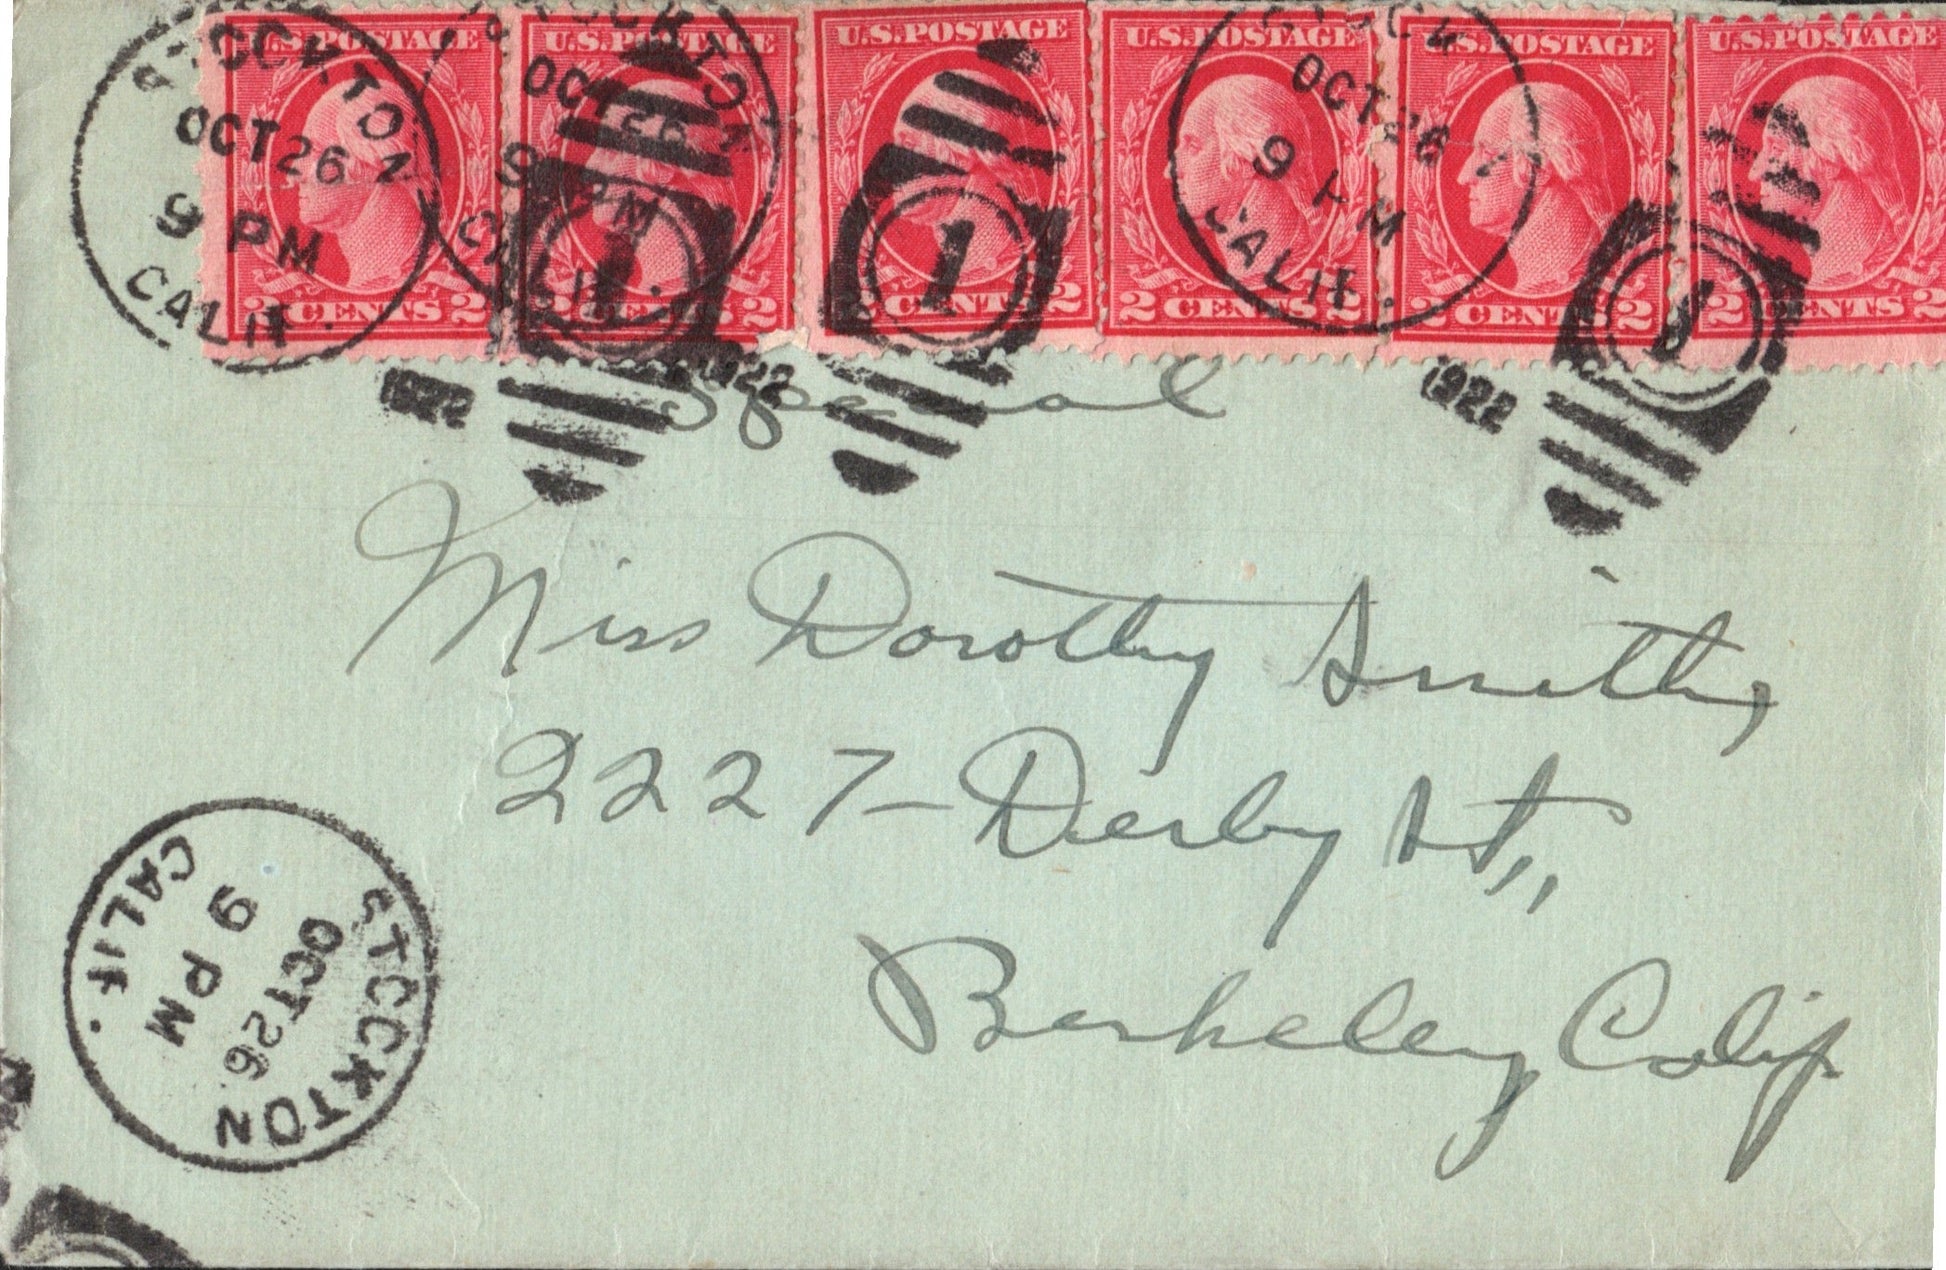 U.S.POSTAGE U.S.POSTAGE U.S.POSTAGE U.S.POSTAGE U.S.POSTAGE U.S.POSTAGE
STOCKTON OCT 26 9 PM CALIF.
STOCKTON OCT 26 9 PM CALIF.
STOCK OCT 26 9 PM CALIF.
1 1 1
2 CENTS 2 2 CENTS 2 2 CENTS 2 2 CENTS 2 2 CENTS 2 2 CENTS 2
1922 1922 1922
Special
Miss Dorothy Smith,
2227-Derby St.,
Berkeley Calif.
STOCKTON
OCT 26
9 PM
CALIF.